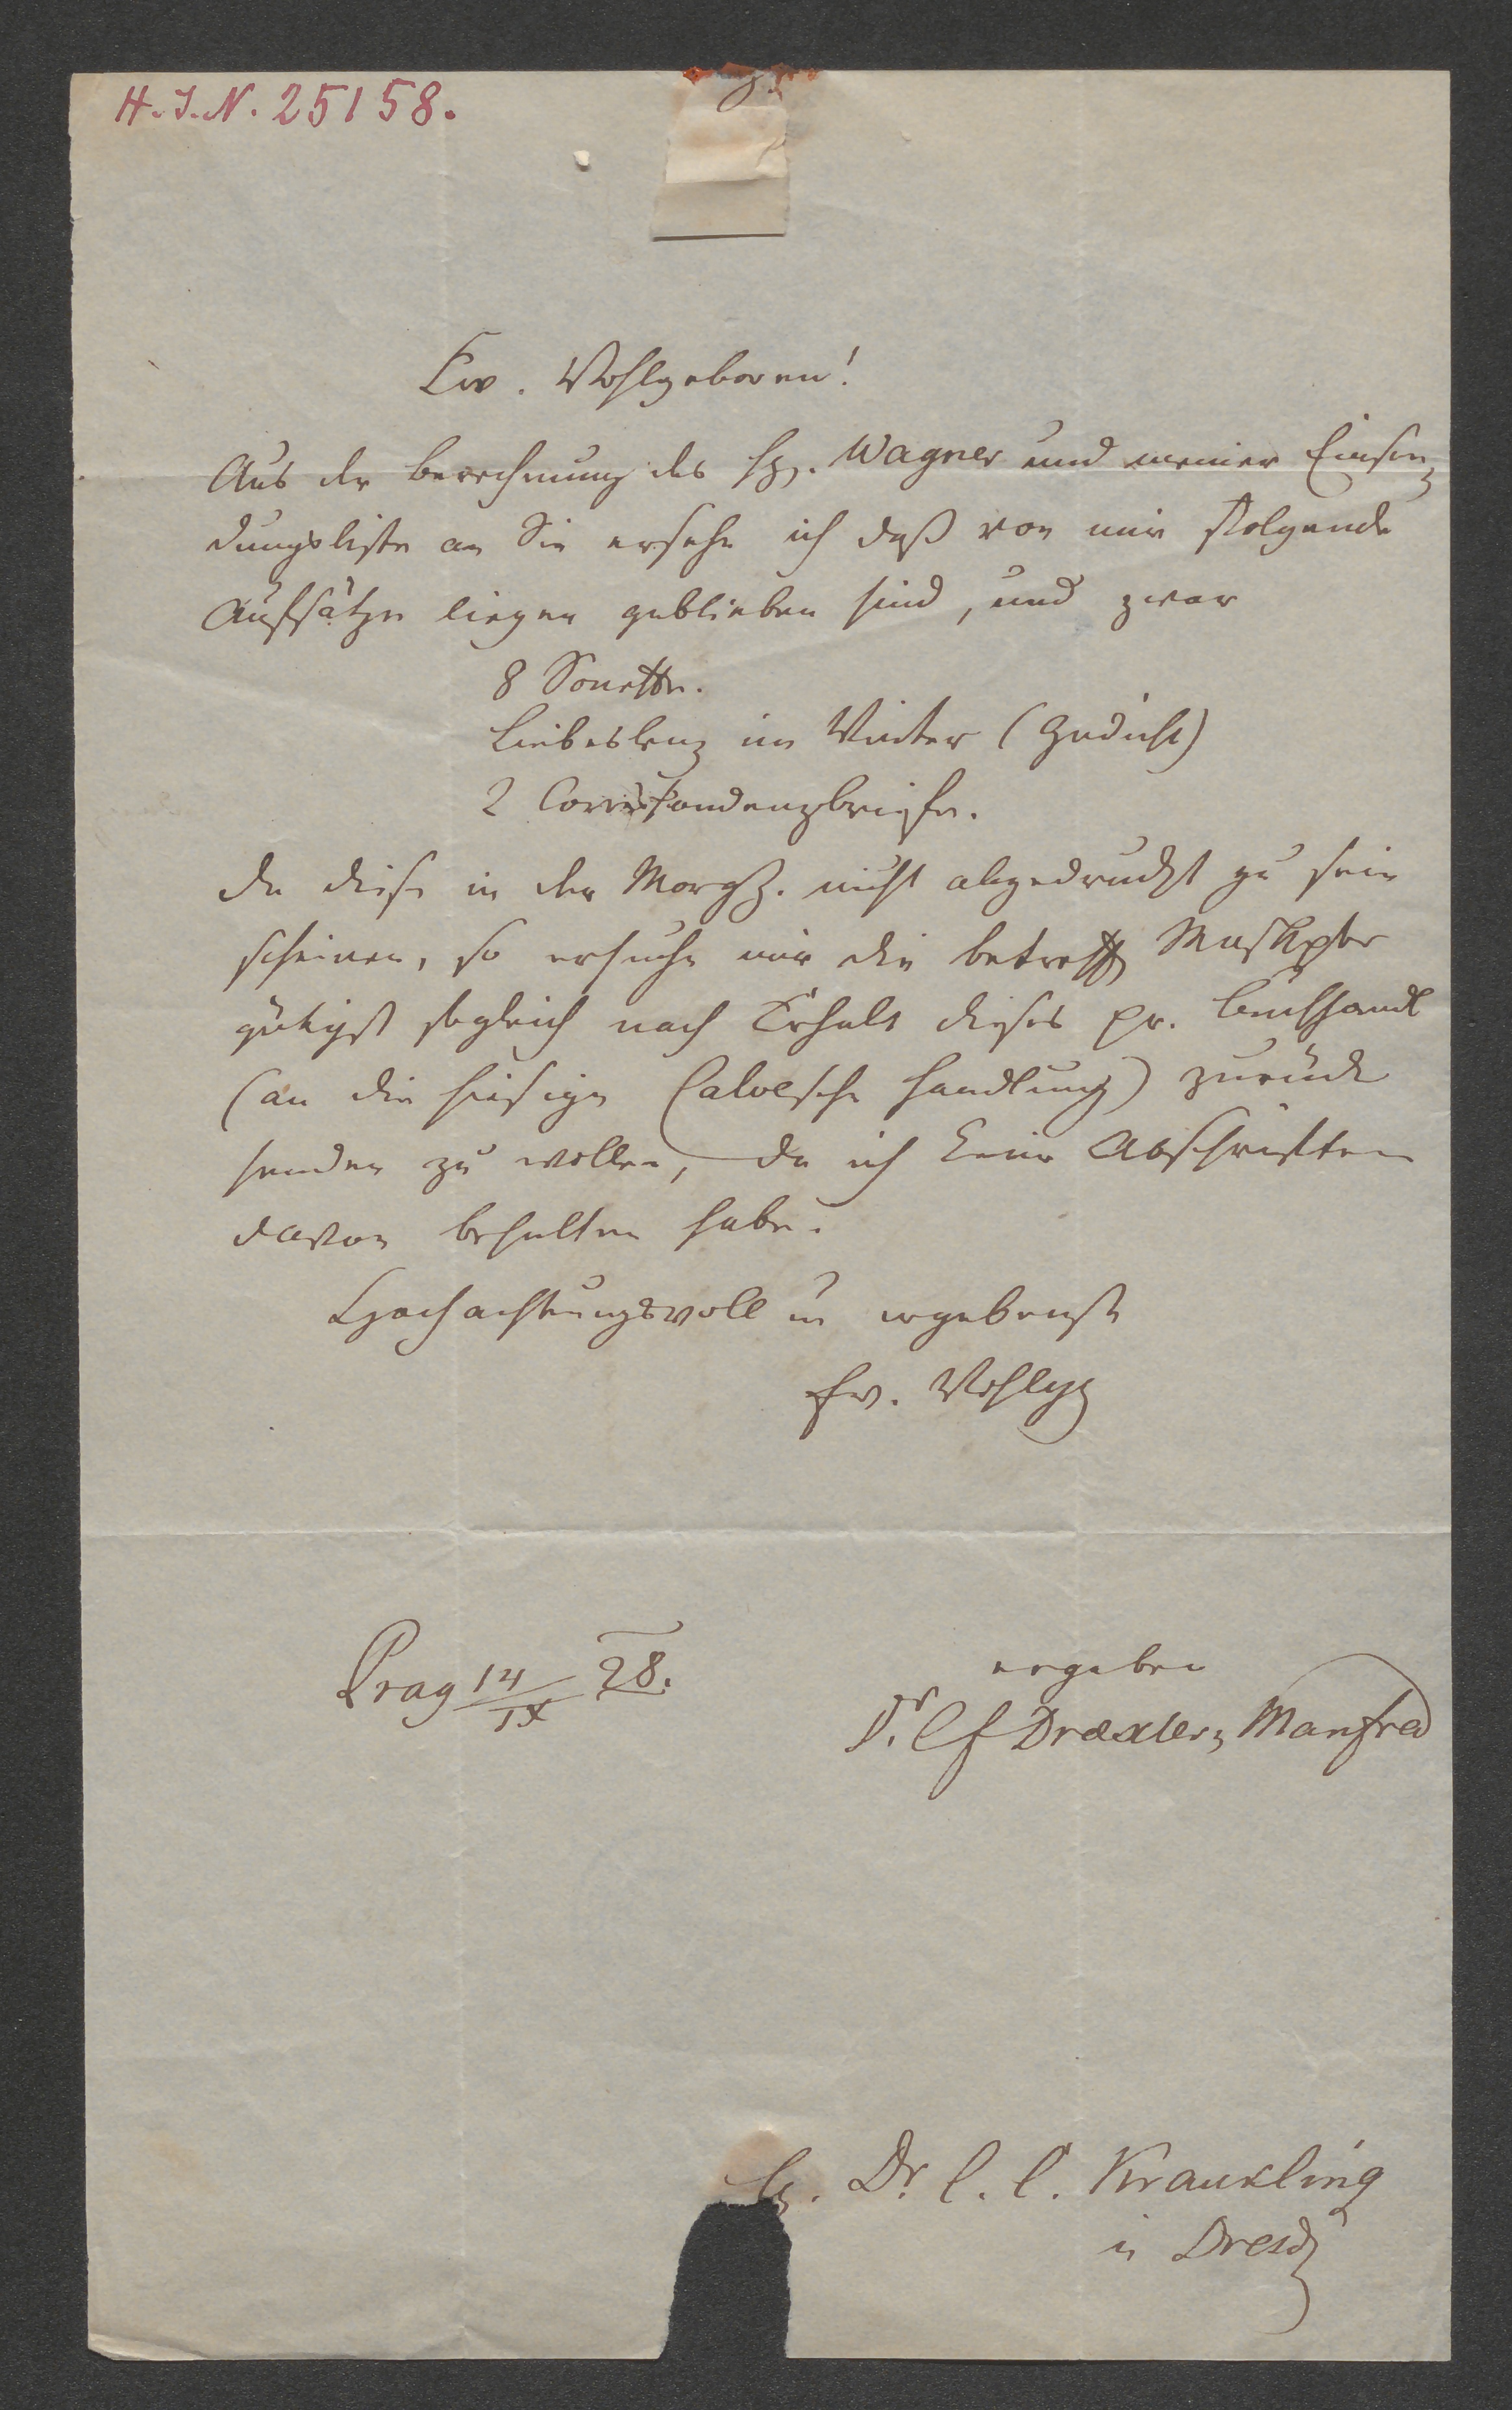 H. I. N. 25158.
Ew. Wohlgeboren!
Aus der Berechnung des H. Wagner und meiner Einsen-
dungsliste an Sie ersehe ich daß von mir folgende
Aufsätze liegen geblieben sind, und zwar
8 Sonette.
Liebeslenz im Winter (Gedicht)
2 Correspondenzbriefe.
Da diese in der MorgZ. nicht abgedruckt zu sein
scheinen, so ersuche mir die betreff Muskpte
gütigst sogleich nach Erhalt dieses pr. Buchhandl
(an die hiesige Calvesche Handlung) zurück
senden zu wollen, da ich keine Abschriften
davon behalten habe.
Hochachtungsvoll u ergebenst
Ew. Wohlg
Prag 14/IX 28.
ergeben
Dr. C f Dräxler-Manfred
H. Dr. C. C. Kraukling
in Dresd